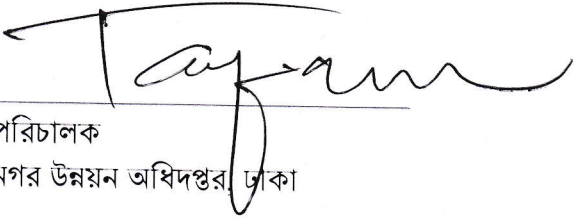 পরিচালক
নগর উন্নয়ন অধিদপ্তর, ঢাকা